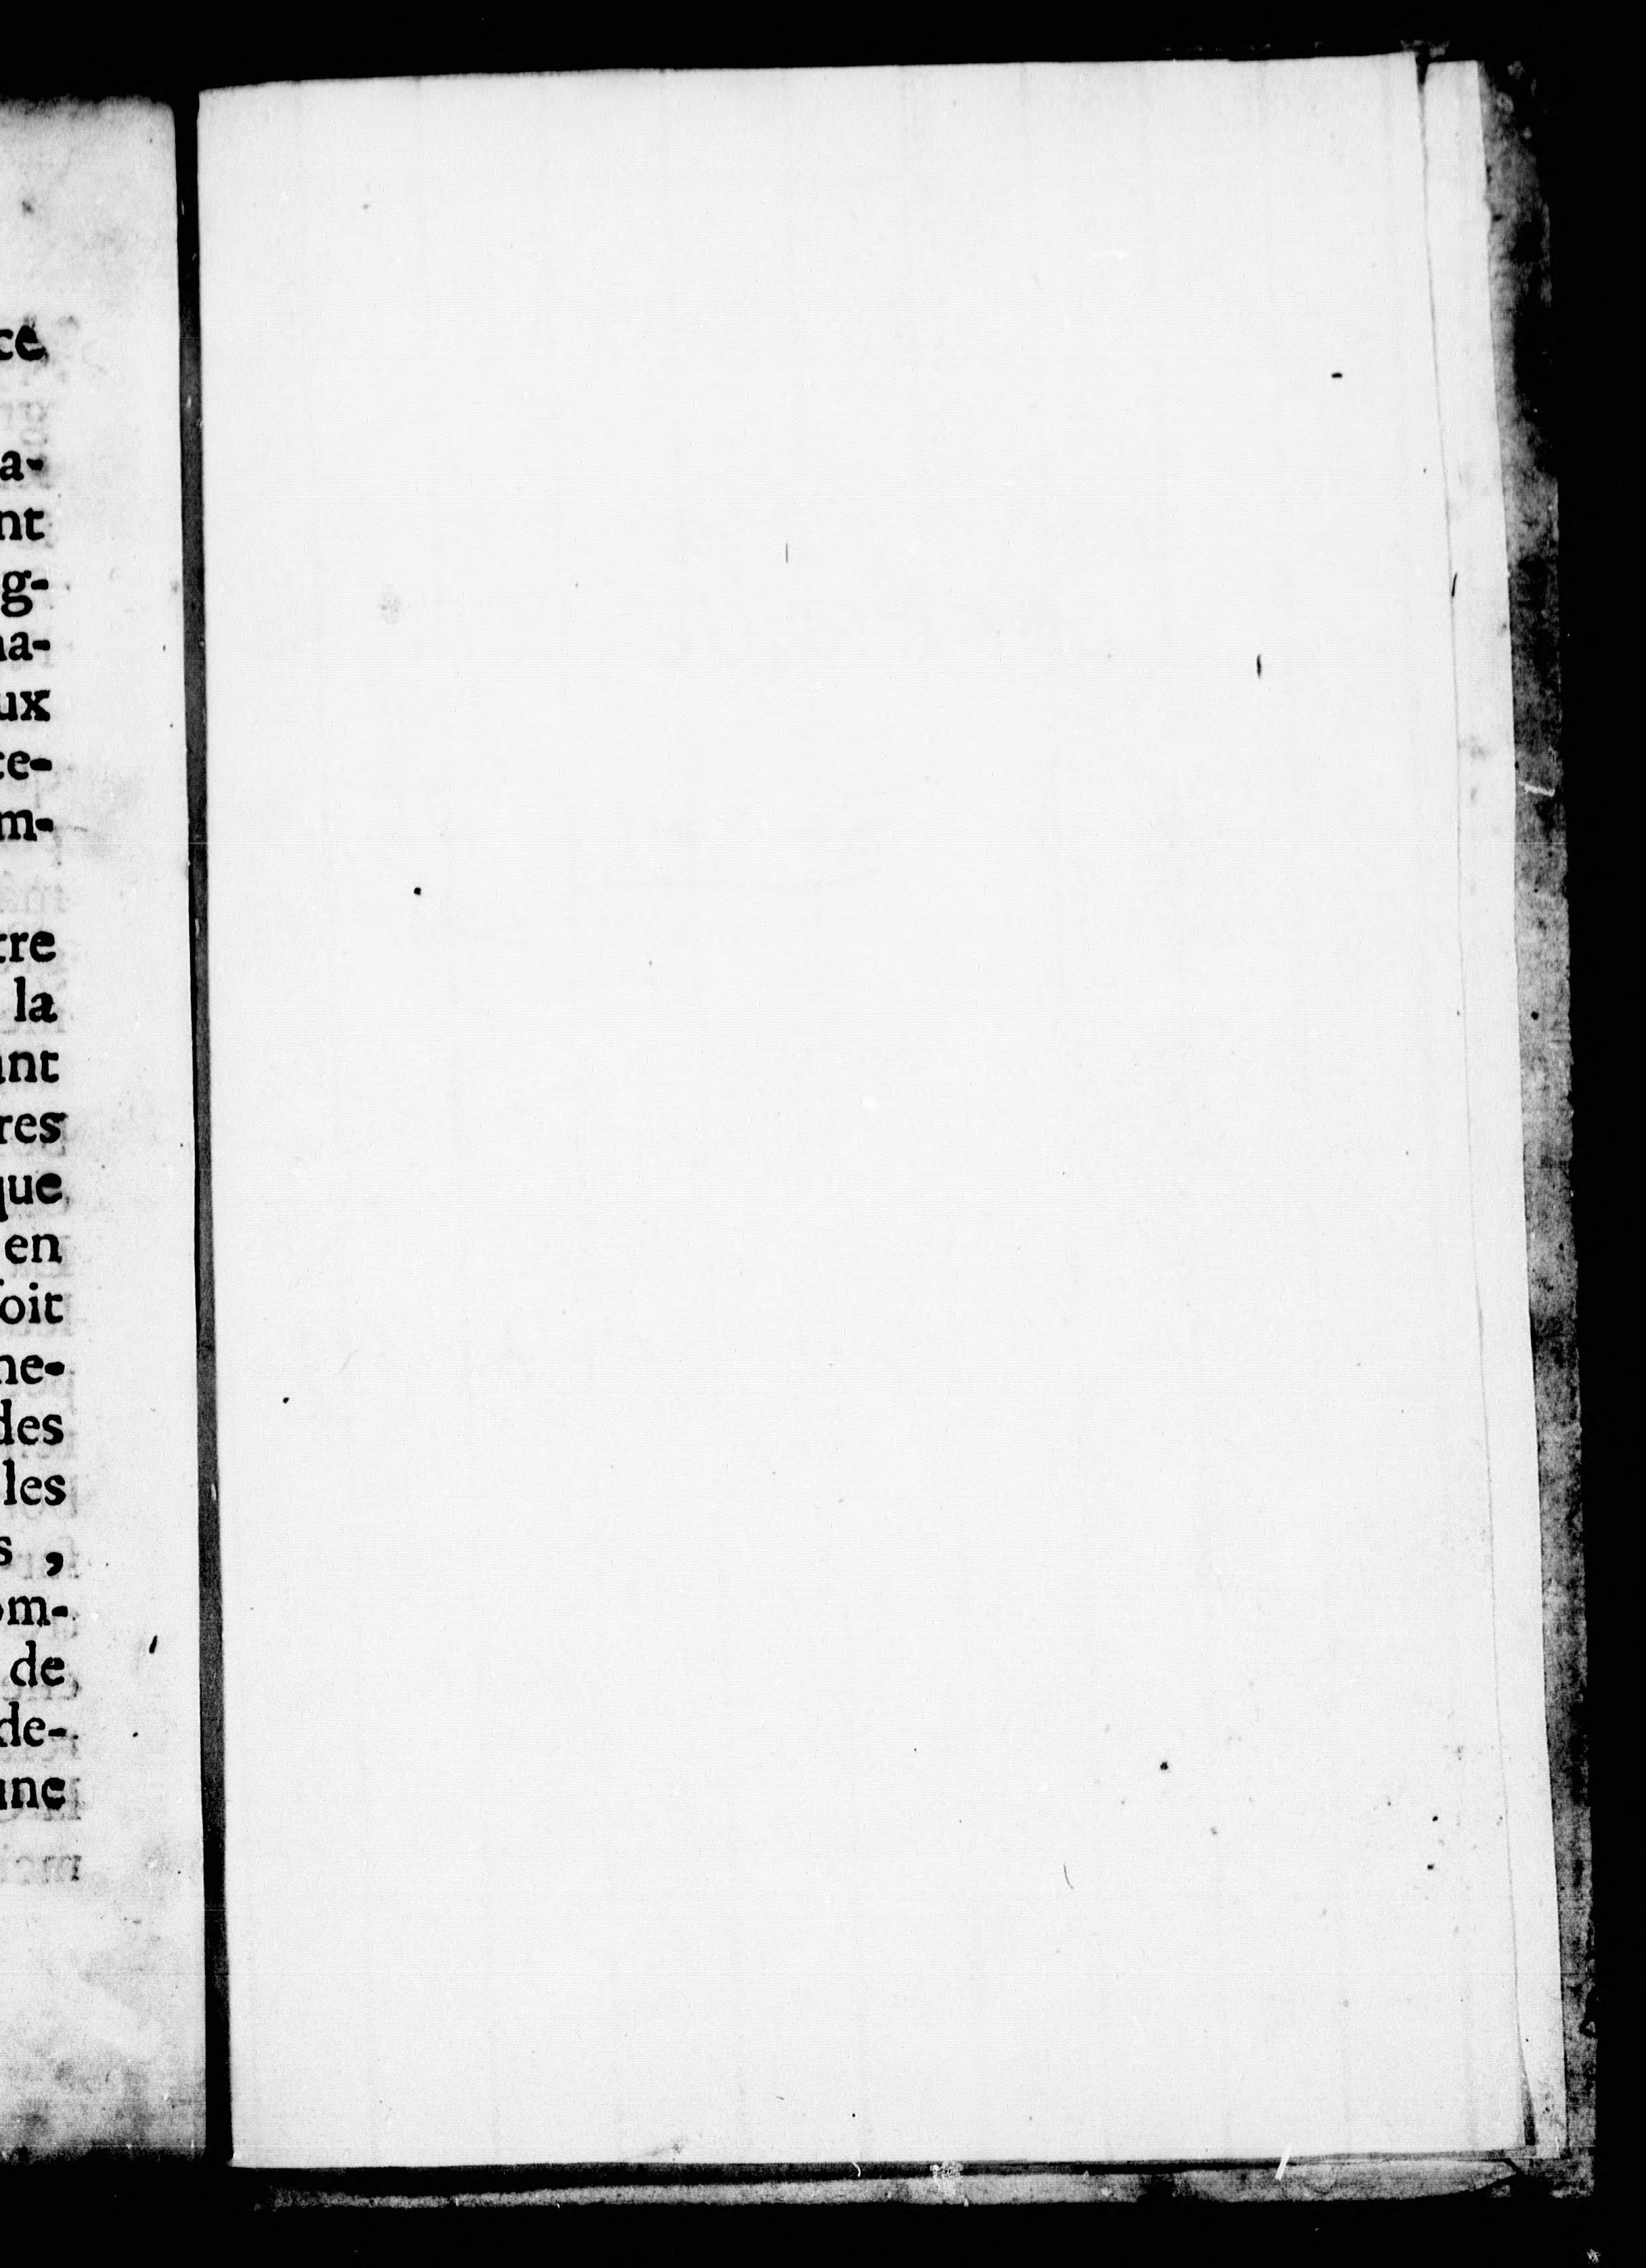 ce
a-
nt
g-
na-
ux
te-
m-
tre
la
ant
res
que
en
ſoit
ne-
des
les
s ,
om-
de
de-
une